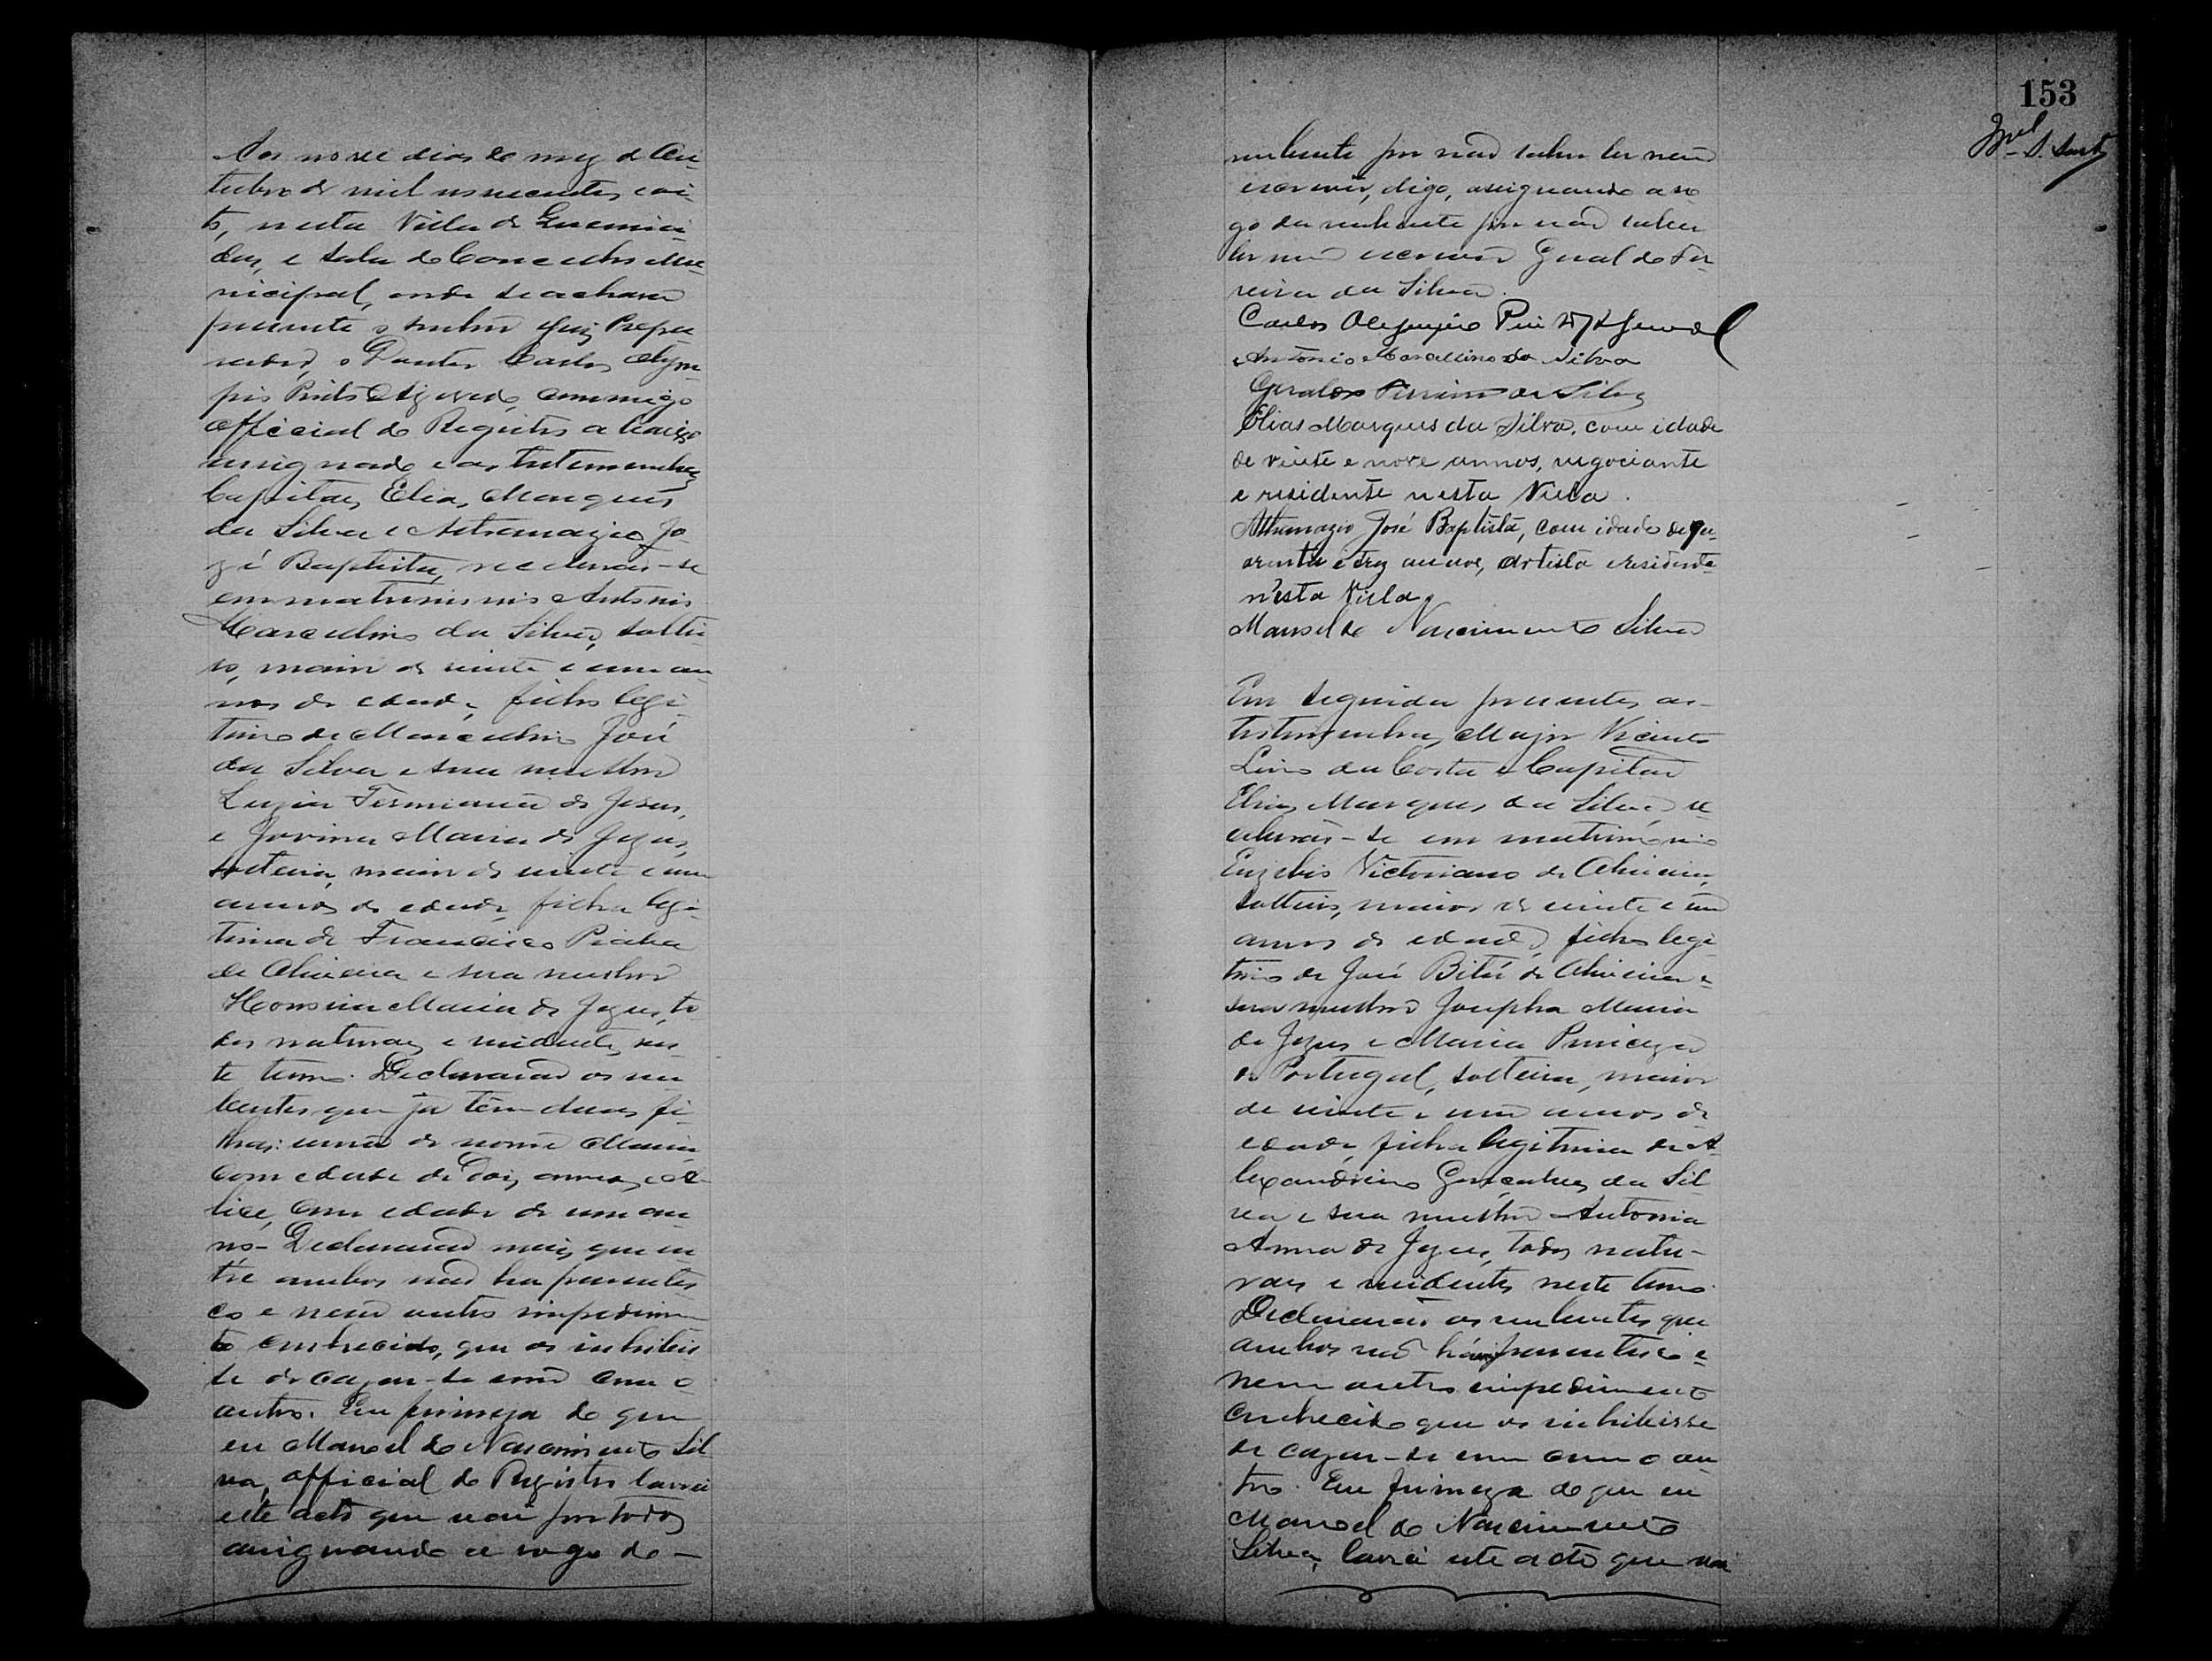 Aos nove dias do mez de Ou-
tubro de mil novecentos e oi-
to, nesta Villa de
e Sala do Concelho Mu-
nicipal, onde se achava
presente o senhor Juiz Prepa-
rador, o Doutor Carlos Olym-
pio Pinto de Azevedo, commigo
official do Registro abaixo
assignado e as testemunhas
Capitão Elias Marques
da Silva e Athanazio Jo-
zé Baptista, receberão-se
em matrimonio Antonio
Marcelino da Silva, soltei-
ro, maior de vinte e um an-
nos de edade, filho legi-
timo de Marcelino José
da Silva e sua mulher
Luzia Firmiana de Jesus,
e Jovina Maria de Jezus,
solteira, maior de vinte e um
annos de edade, filha legi-
tima de Francisco
de Oliveira e sua mulher
Maria de Jezus, to-
dos naturaes e residentes nes-
te termo. Declararão os nu-
bentes que já têm duas fi-
lhas: uma de nome Maria
com edade de dois annos, e A-
lice, com edade de um an-
no. Declararão mais que en-
tre ambos não ha parentes-
co e nem outro impedimen-
to conhecido, que os inhibis-
se de cazar-se um com o
outro. Em firmeza do que
eu Manoel do Nascimento Sil-
va, official do Registro lavrei
este acto que vai por todos
assignando a rogo do -
153
nubente por não saber ler nem
escrever, digo, assignando a ro-
go da nubente por não saber
ler nem escrever Geraldo Fer-
reira da Silva.
Carlos Olympio Pinto de Azevedo
Antonio Marcellino da Silva
Geraldo Ferreira da Silva
Elias Marques da Silva, com idade
de vinte e nove annos, negociante
e residente nesta Villa.
Athanazio José Baptista, com idade de qu-
arenta e trez annos, artista e residente
n'esta Villa.
Manoel do Nascimento Silva
Em seguida presentes as
testemunhas, Major Vicente
Lins da Costa e Capitão
Elias Marques da Silva, re-
ceberão-se em matrimonio
Euzebio Victoriano de Oliveira,
solteiro, maior de vinte e um
annos de edade, filho legi-
timo de José Bitú de Oliveira e
sua mulher Josepha Maria
de Jezus e Maria Princeza
de Portugal, solteira, maior
de vinte e um annos de
edade, filha legitima de A-
lexandrino Gonçalves da Sil-
va e sua mulher Antonia
Anna de Jezus, todos natu-
raes e residentes neste termo.
Declararão os nubentes que
ambos não há parentesco e
nem outro impedimento
conhecido que os inhibisse
de cazar-se um com o ou-
tro. Em firmeza do que eu
Manoel do Nascimento
Silva, lavrei este acto que vai